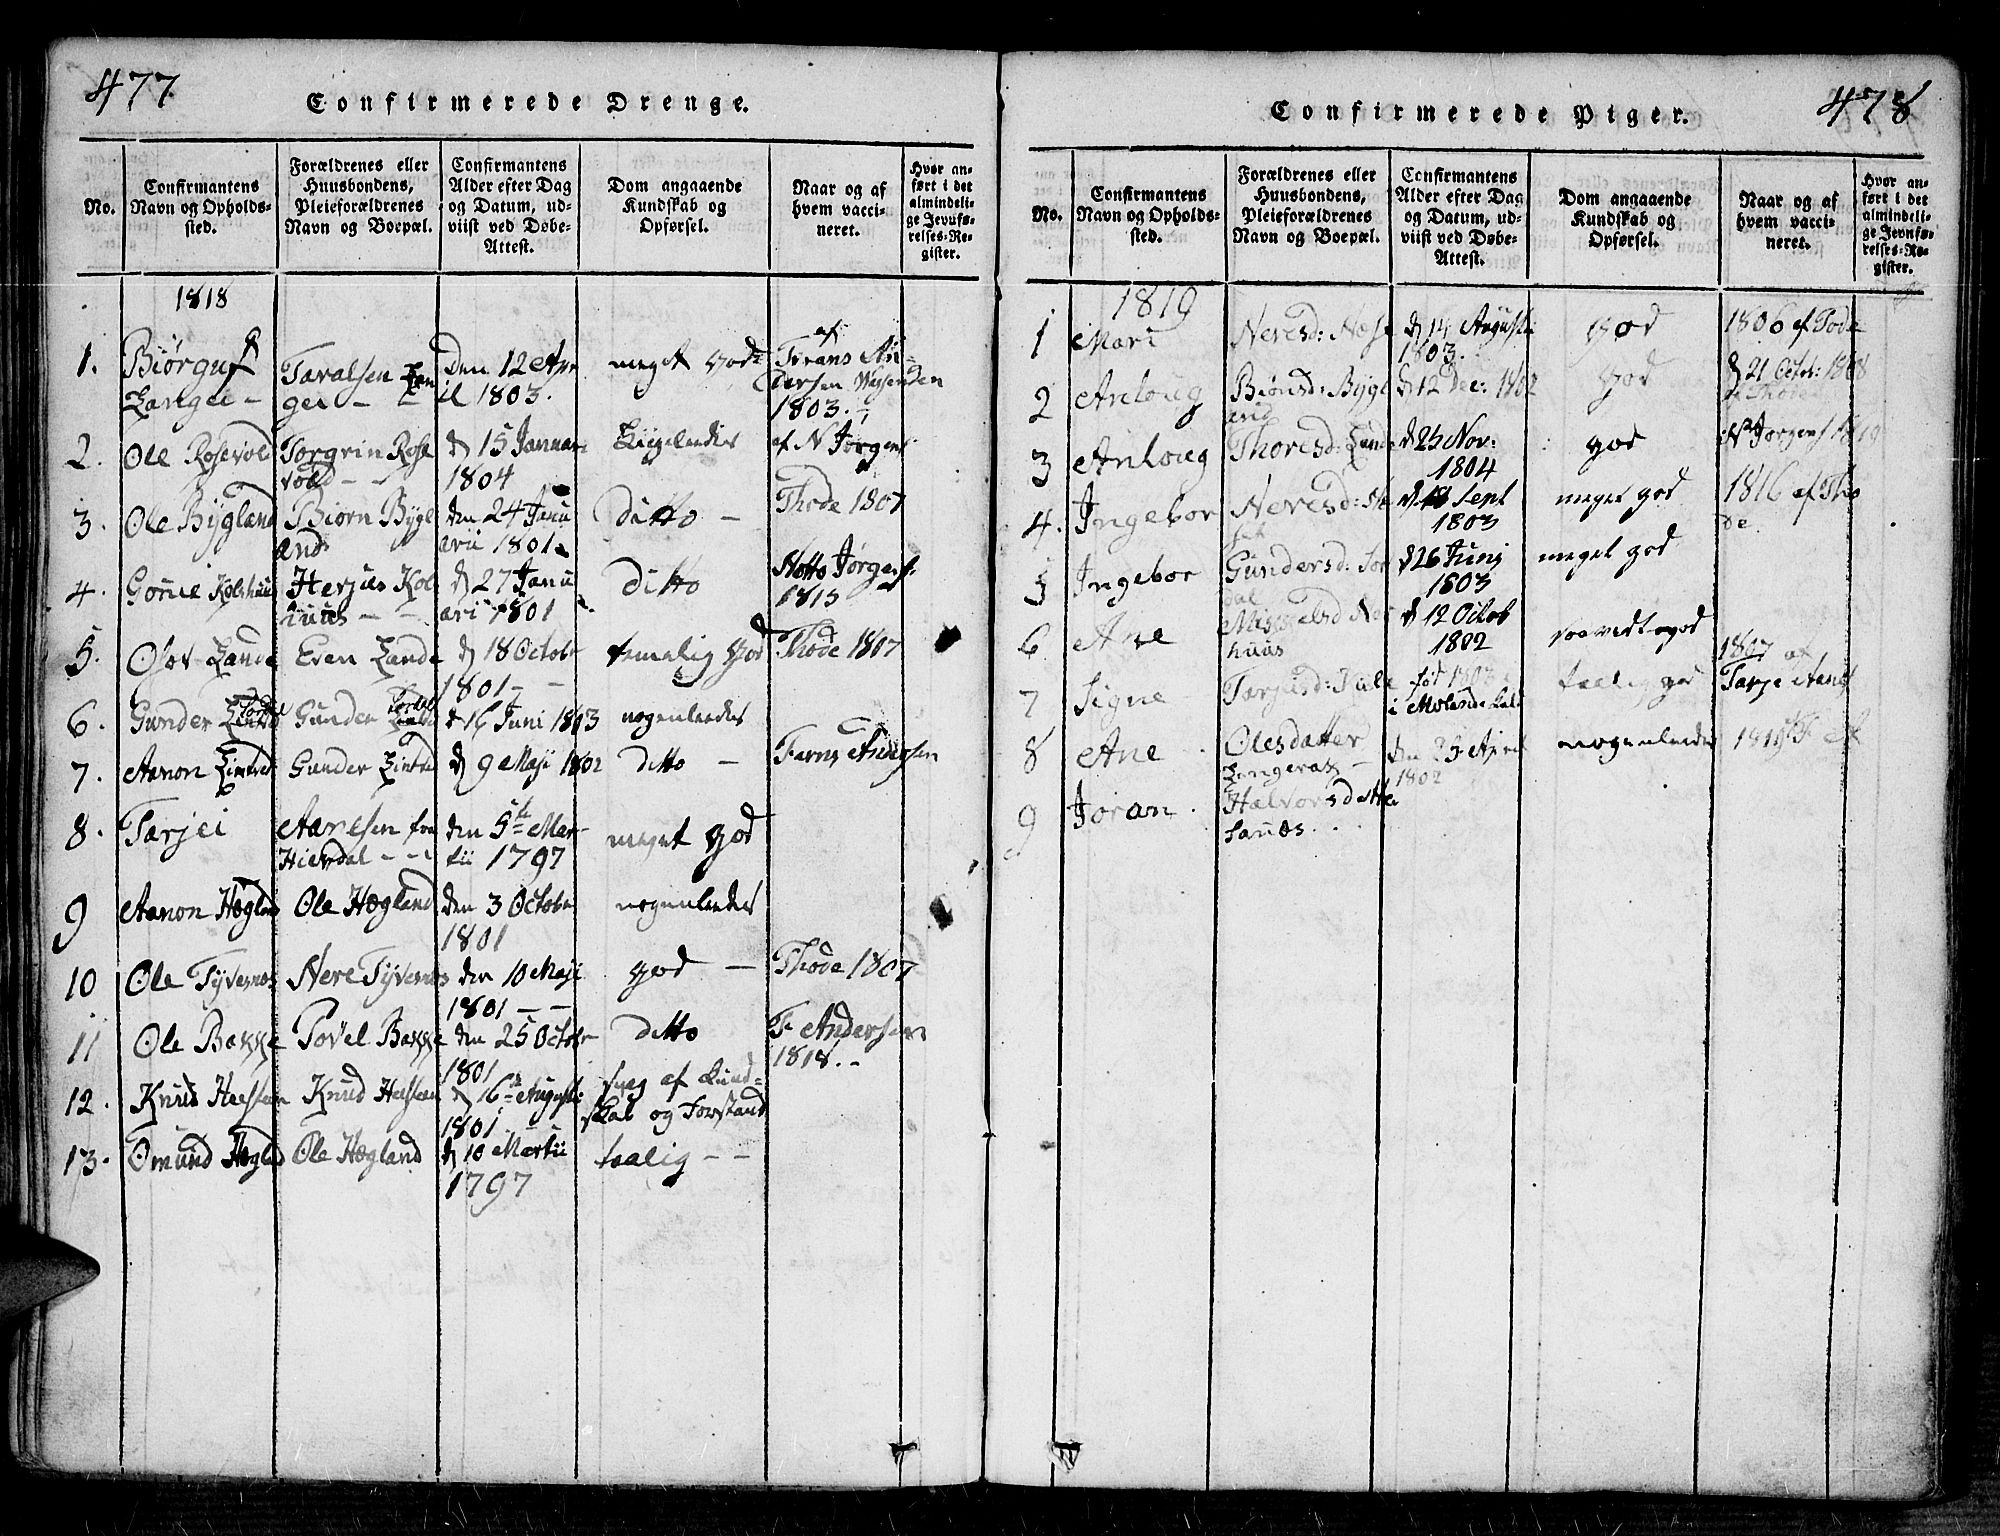 477
Confirmerede Drenge.
No.
Confirmantens Navn og Opholdssted.
Forældrenes eller Huusbondens, Pleieforældrenes Navn og Boepæl.
Confirmantens Alder efter Dag og Datum, udviist ved Døbe-Attest.
Dom angaaende Kundskab og Opførsel.
Naar og af hvem vaccineret.
Hvor anført i det almindelige Jevnførelses-Register.
1818
1. Biørguf Langei - Taralsen Langei - - Den 12 Apr il 1803. meget God af Frans Andersen 1803. -
2. Ole Rosevold Torgrin Rosevold - - d 15 Januar 1804 Ligeledes af N Jørgens
3. Ole Bygland Biørn Bygland den 24 Januarii 1801 ditto - Thode 1807
4. Gonie Kolshuus Herjus Kolhuus - - d 27 Januarii 1801 ditto Notto Jørgens: 1815
5. Olov Lande Even Lande d 18 Octobr 1801 - - temelig God Thode 1807
6. Gunder Gunder d 16 Juni 1803 nogenledes
7. Aanon Gunder d 9 Maji 1802 ditto - Andersen
8. Tarjei Aaresen fra - - den 5te Martii 1797 meget God
9 Aanon Hægland Ole Hægland den 3 Octobr 1801 nogenledes
10 Ole Tyvesnos Nere Tyvesnos den 10 Maji 1801 - - God - Thode 1807
11 Ole Bakke Tovel Bakke den 25 Octobr 1801 ditto F Andersen 1818. -
12. Knud Knud d 16te Augusti 1801 svag af Kundskab og Forstand
13. Omund Hægland Ole Hægland d 10 Martii 1797 taalig - -
478
Confirmerede Piger.
No.
Confirmantens Navn og Opholdssted.
Forældrenes eller Huusbondens, Pleieforældrenes Navn og Boepæl.
Confirmantens Alder efter Dag og Datum, udviist ved Døbe-Attest.
Dom angaaende Kundskab og Opførsel.
Naar og af hvem vaccineret.
Hvor anført i det almindelige Jevnførelses-Register.
1819
1 Mari Neresd: d 14 Augusti 1803. God 1806 af Tode
2 Anloug Biønsd: Bygland d 12 Dec: 1802 God d 21 Octob: 1808
3 Anloug Thoresd: Lande d 25 Nov: 1804 god Jørgens 1819
4. Ingebor Neresd: d Sept 1803 meget god 1816 af Thode
5 Ingebor Gundersd: d 26 Junij 1803 meget god
6 Ane d 12 Octob 1802
7 Signe Tarjusd: fød 1803 i taalig god 1807 af Tarje
8 Ane Olesdatter Langerak - den 25 April 1802 nogenledes
9 Joran Halvorsdatter